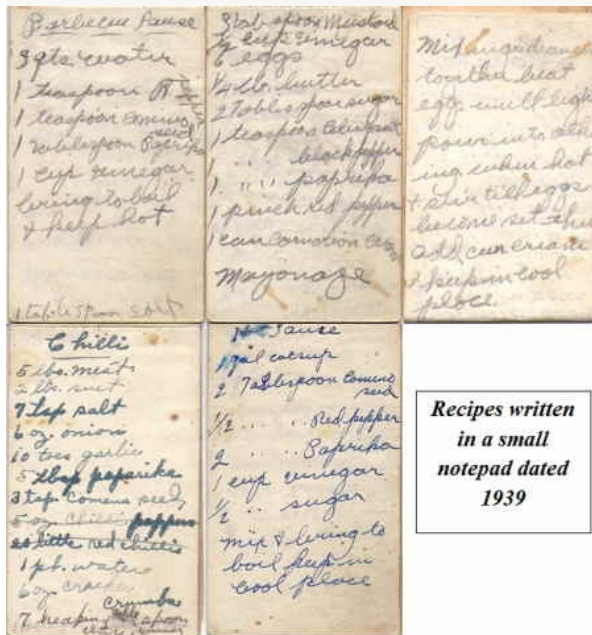 Barbecue Sauce
3 qts water
1 teaspoon R pepper
1 teaspoon comino seed
1 tablespoon Paprika
1 cup vinegar
bring to boil
& keep hot
1 tablespoon salt
3 tabspoon Mustard
1/2 cup vinegar
6 eggs
1/4 lb. butter
2 Tablespoon sugar
1 teaspoon Celery salt
1 " " black pepper
1 " " paprika
1 pinch red pepper
1 can Carnation Cream
Mayonage
Mix ingredients
together beat
eggs until light
pour into
ing when hot
& stir till eggs
become set then
add can cream
& keep in cool
place
Chilli
5 lbs. meat
2 lbs. suet
7 tsp salt
6 oz. onion
10 toes garlic
5 tbsp paprika
3 tsp comena seed
5 oz chilli peppers
20 little red chillis
1 pt. water
6 oz. cracker
crumbs
7 heaping table spoon
Sauce
1 gal catsup
2 Tablespoon comino
seed
1/2 .. .. Red pepper
2 .. .. Paprika
1 cup vinegar
1/2 .. sugar
mix & bring to
boil keep in
cool place
Recipes written
in a small
notepad dated
1939